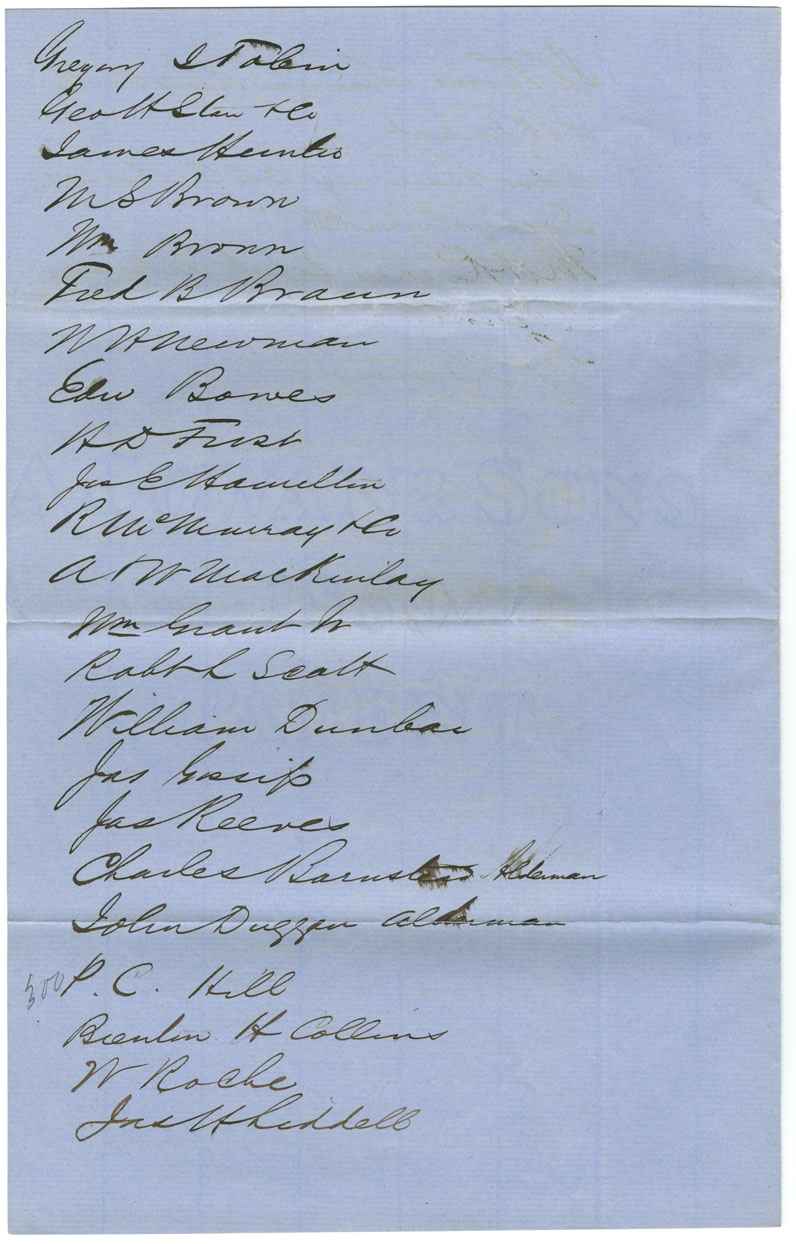 Gregory I Tobin
Geo H Starr & Co
James Hunter
M S Brown
Wm Brown
Fred B Braun
W H Newman
Edw Bowes
H D Frost
Jas E Hamilton
R McMurray & Co
A & W MacKinlay
Wm Grant Jr
Robt L Scott
William Dunbar
Jas Gossip
Jas Reeves
Charles Barnstead Alderman
John Duggan Alderman
300 P. C. Hill
H Collins
W Roche
Jas H Liddell